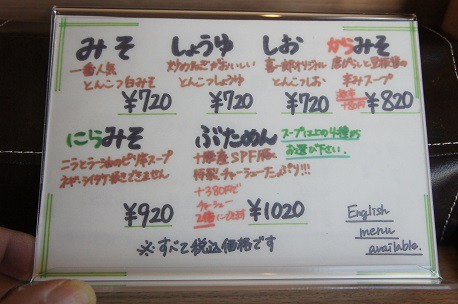 みそ
一番人気
とんこつ白みそ
¥720
しょうゆ
炒めねぎがおいしい
とんこつしょうゆ
¥720
しお
喜一郎オリジナル
とんこつしお
¥720
からみそ
唐がらしと豆板醤の
辛みスープ
¥820
にらみそ
ニラとラー油のピリ辛スープ
ネギ・シイタケ抜きできません
¥920
ぶためん
スープは上の4種から
お選び下さい。
十勝産SPF豚
特製チャーシューたっぷり!!!
+380円で
チャーシュー
2倍に
¥1020
※すべて税込価格です
English
menu
available.